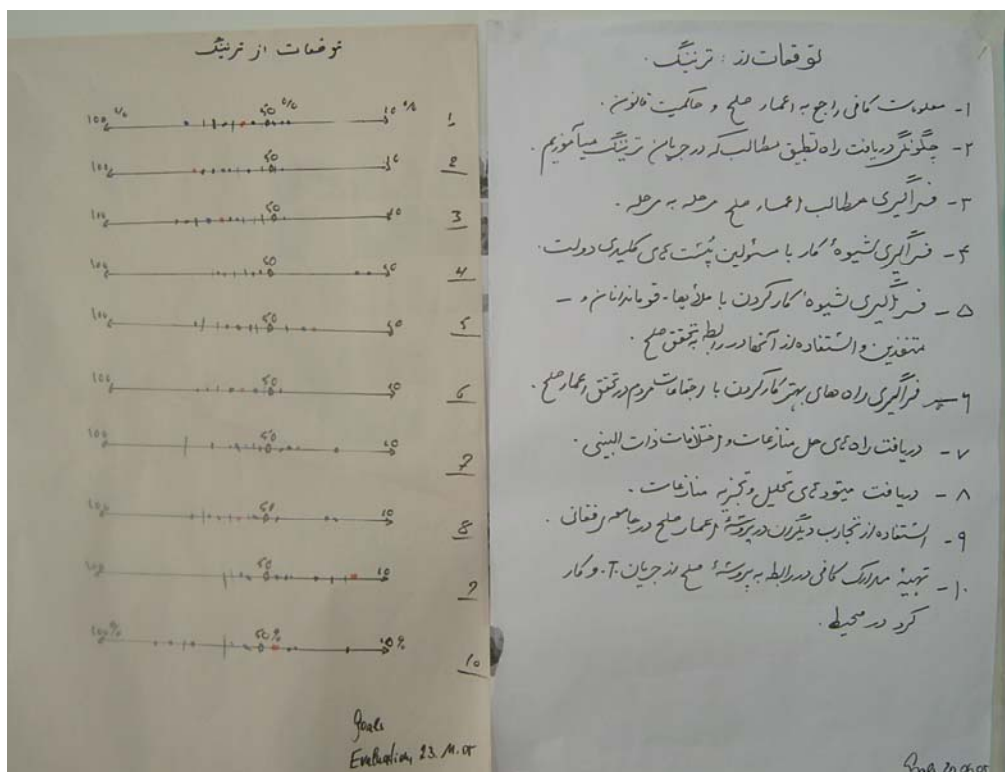 توقعات از ترنینگ
100 % 50 % 10 % 1
100 50 10 2
100 50 10 3
100 50 10 4
100 50 10 5
100 50 10 6
100 50 10 7
100 50 10 8
100 50 10 9
100% 50% 10% 10
Goals
Evaluation, 23. 11. 05
توقعات از : ترنینگ .
۱- معلومات کافی راجع به اعمار صلح و حاکمیت قانون .
۲- چگونگی دریافت راه تطبیق مطالب که در جریان ترنینگ میآموزیم .
۳- فراگیری مطالب اعمار صلح مرحله به مرحله .
۴- فراگیری شیوهٔ کار با مسئولین پُست های کلیدی دولت .
۵- فراگیری شیوهٔ کار کردن با ملاها - قوماندانان و -
متنفذین و استفاده از آنها در رابطه به تحقق صلح .
۶- فراگیری راه های بهتر کار کردن با اجتماعات مردم در تحقق اعمار صلح .
۷- دریافت راه های حل منازعات و اختلافات ذات البینی .
۸- دریافت میتود های تحلیل و تجزیه منازعات .
۹- استفاده از تجارب دیگران در پروسهٔ اعمار صلح در جامعه افغانی .
۱۰- تهیهٔ مدارک کافی در رابطه به پروسهٔ صلح از جریان .T. و کار
کرد در محیط .
Goals